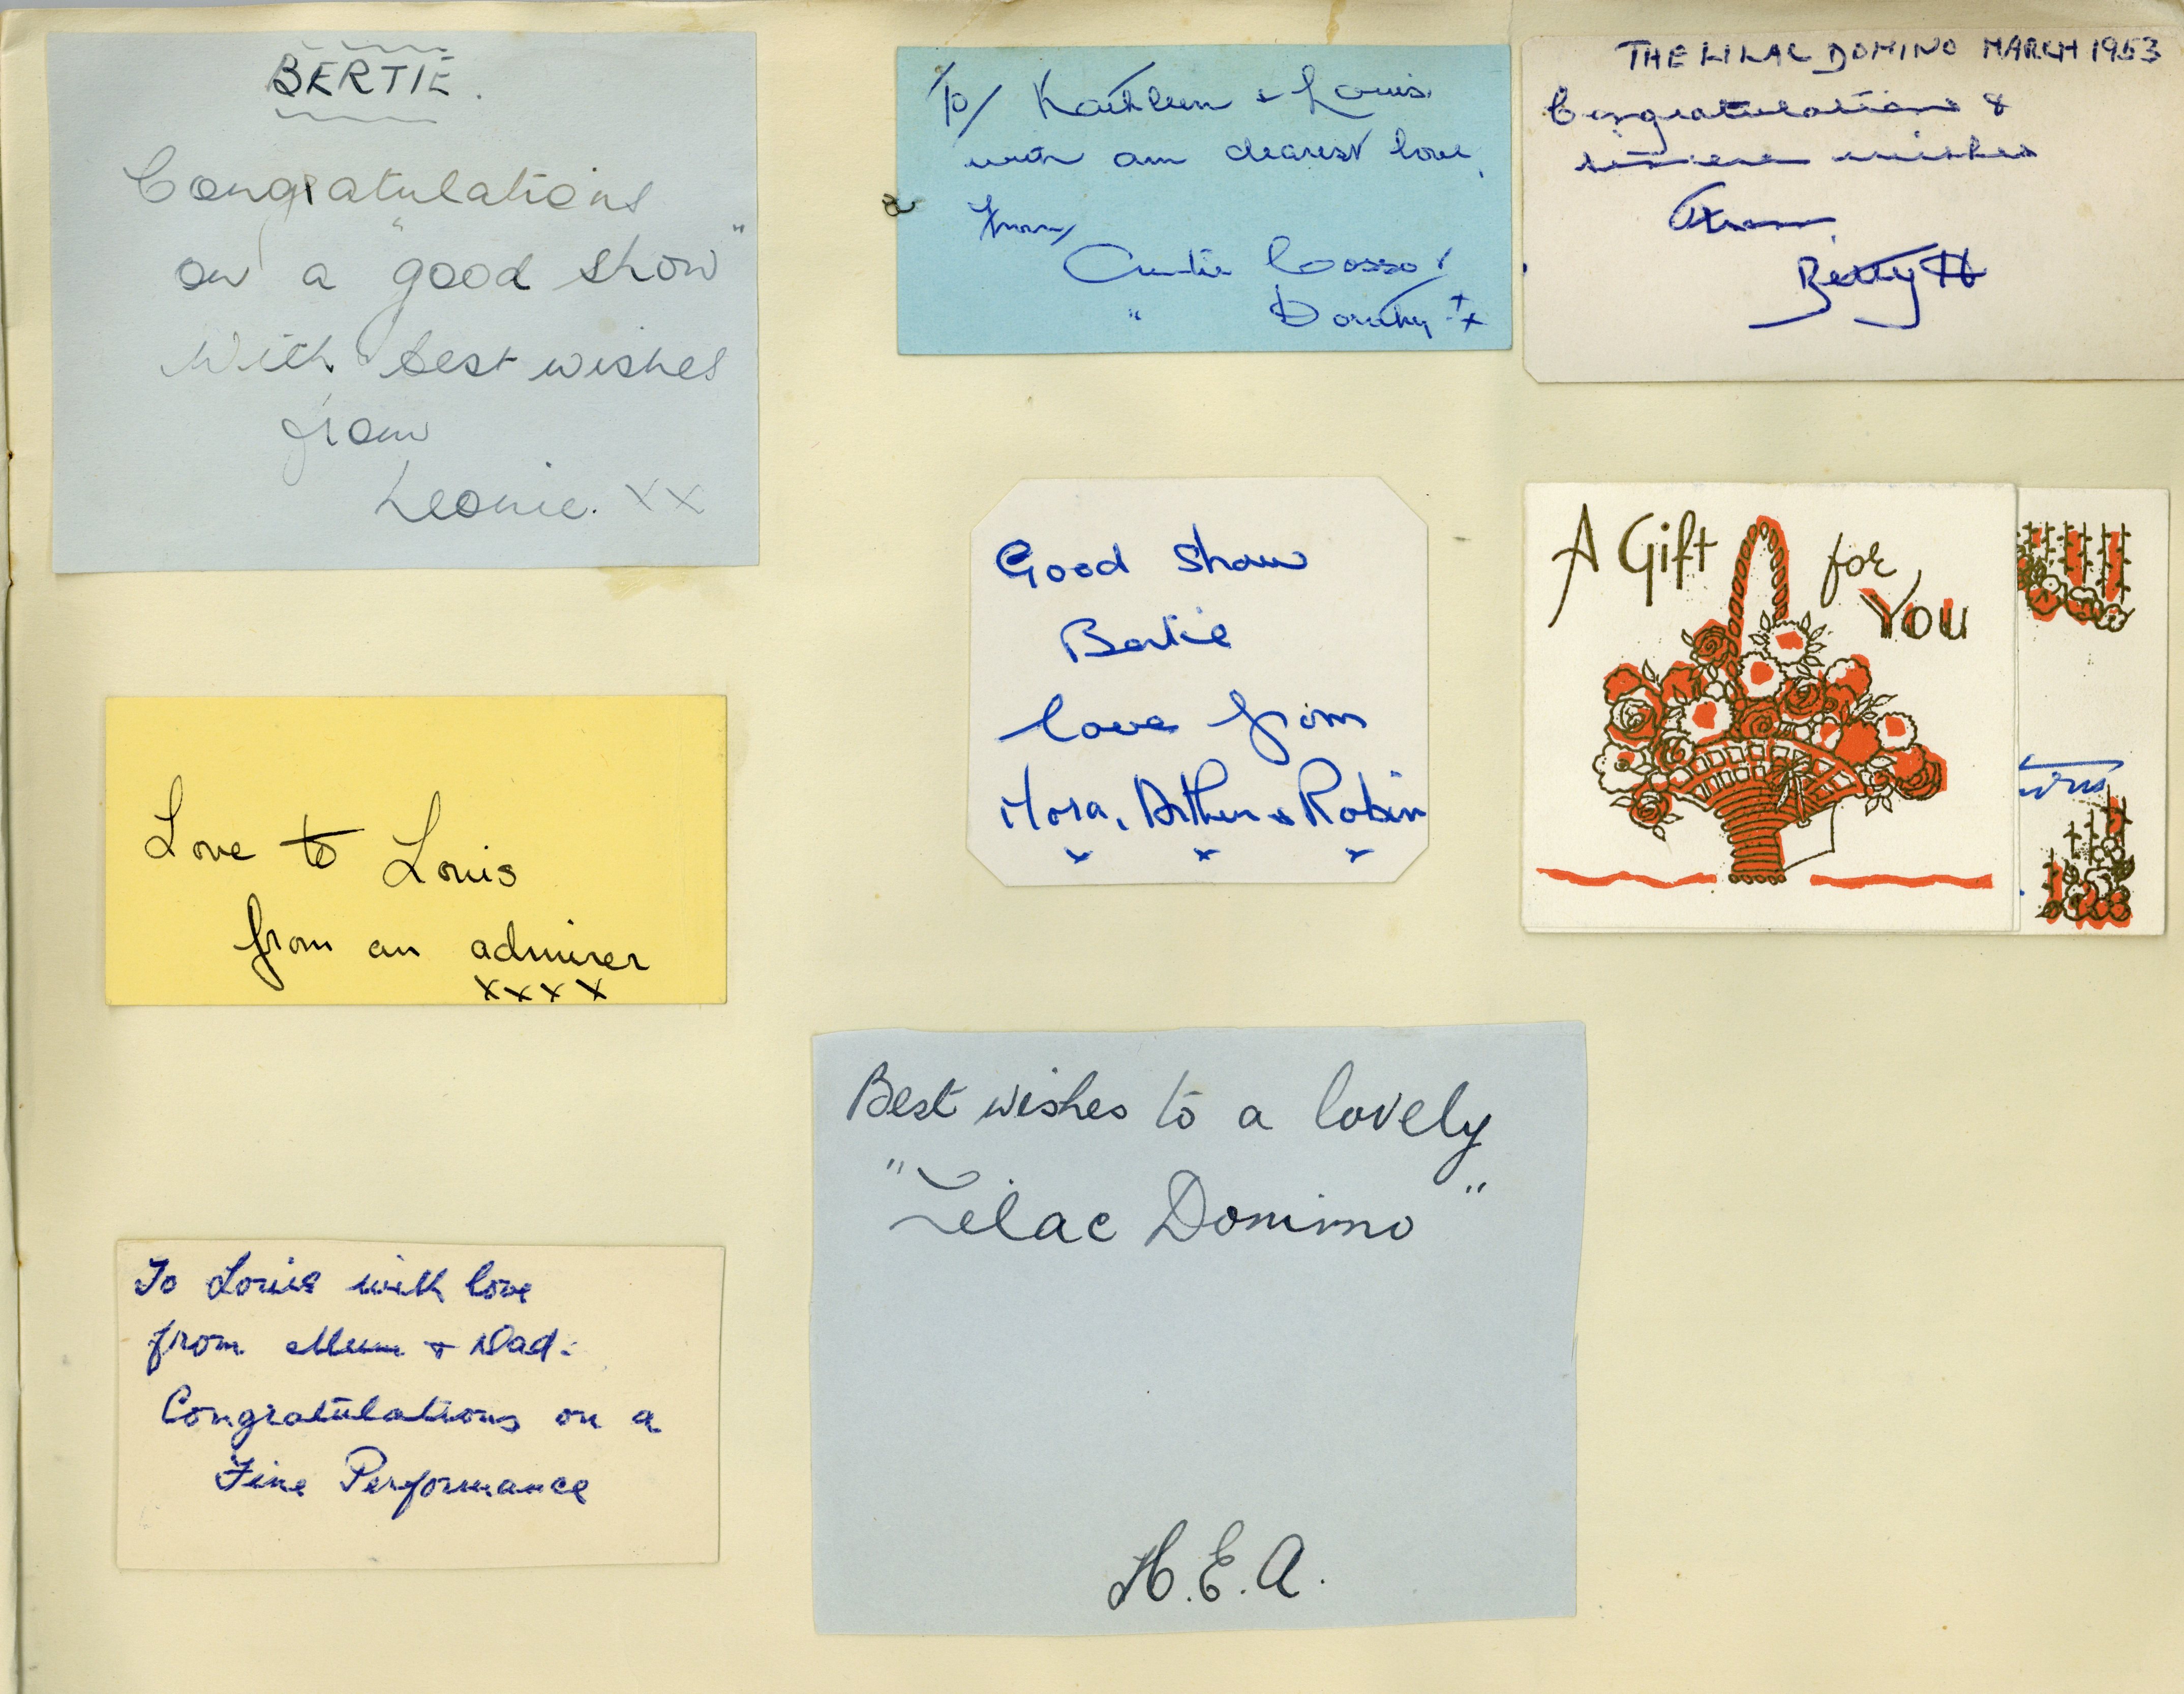 BERTIE.
Congratulations
on a "good show"
with best wishes
from
Leonie. XX
To/ Kathleen & Louis.
with our dearest love,
from/
Auntie Cosso/
" Dorothy xx
THE LILAC DOMINO MARCH 1953
Congratulations &
sincere wishes
From
Betty H
Good Show
Bertie
love from
Mora, Arthur & Robin
x x x
A Gift for
You
Love to Louis
from an admirer
xxxx
Best wishes to a lovely
"Lilac Domino"
H.E.A.
To Louis with love
from Mum + Dad.
Congratulations on a
Fine Performance